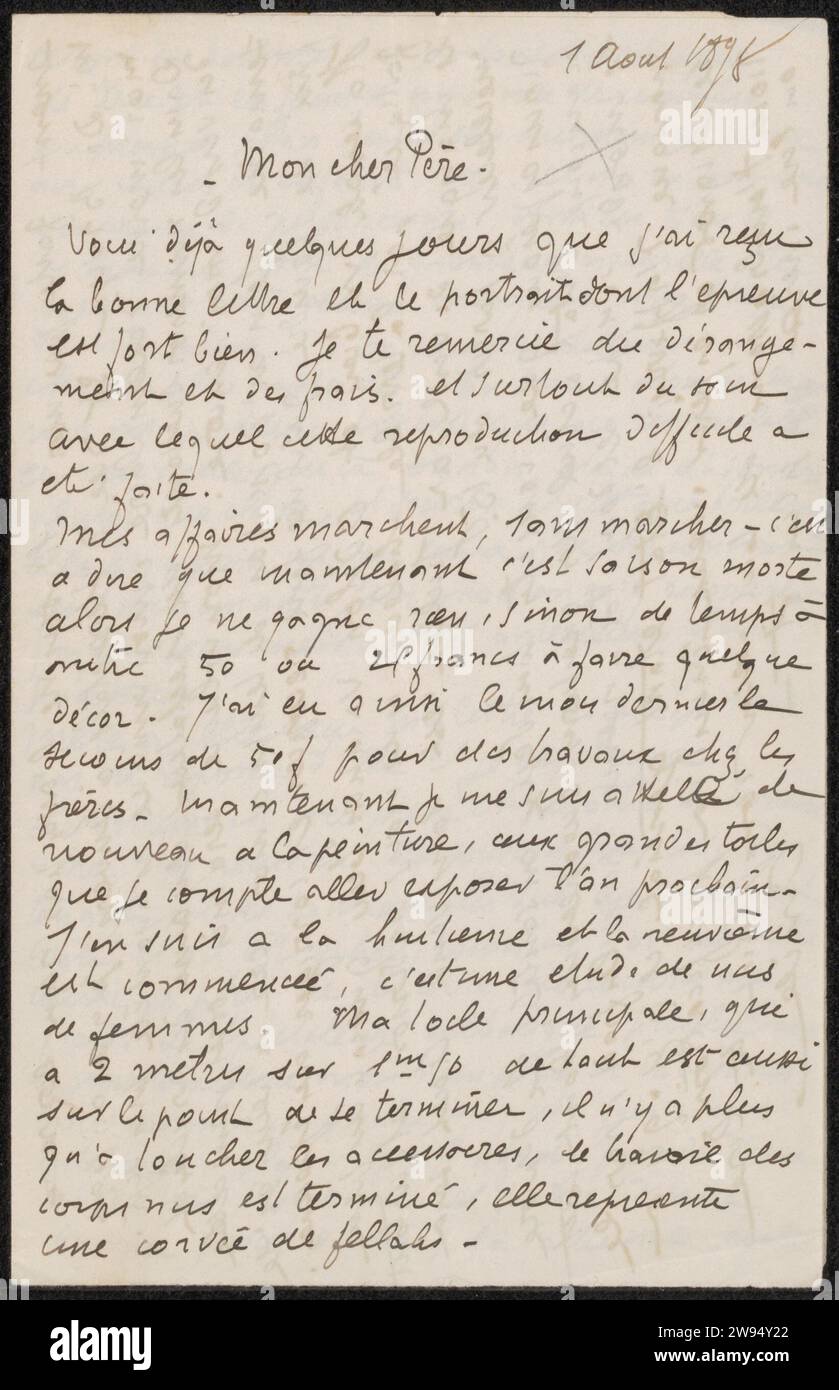 1 Aout 1898
- Mon cher Père -
Voici déjà quelques jours que j'ai reçu
la bonne lettre et le portrait dont l'epreuve
est fort bien. Je te remercie du dérange-
ment et des frais. et surtout du soin
avec lequel cette reproduction difficile a
eté faite.
Mes affaires marchent, sans marcher - c'est
a dire que maintenant c'est saison morte
alors je ne gagne rien, sinon de temps à
autre 50 ou francs à faire quelque
décor. J'ai eu ainsi le mois dernier le
secours de 50f pour des travaux chez les
frères - maintenant je me suis attelé de
nouveau a la peinture, aux grandes toiles
que je compte aller exposer l'an prochain -
J'en suis a la huitieme et la neuvième
est commencée, c'est une etude de nus
de femmes. Ma toile principale, qui
a 2 metres sur 1m50 de haut est aussi
sur le point de se terminer, il n'y a plus
qu'a toucher les accessoires, le travail des
corps nus est terminé, elle represente
une corvée de fellahs -
alamy
Image ID: 2W94Y22
www.alamy.com